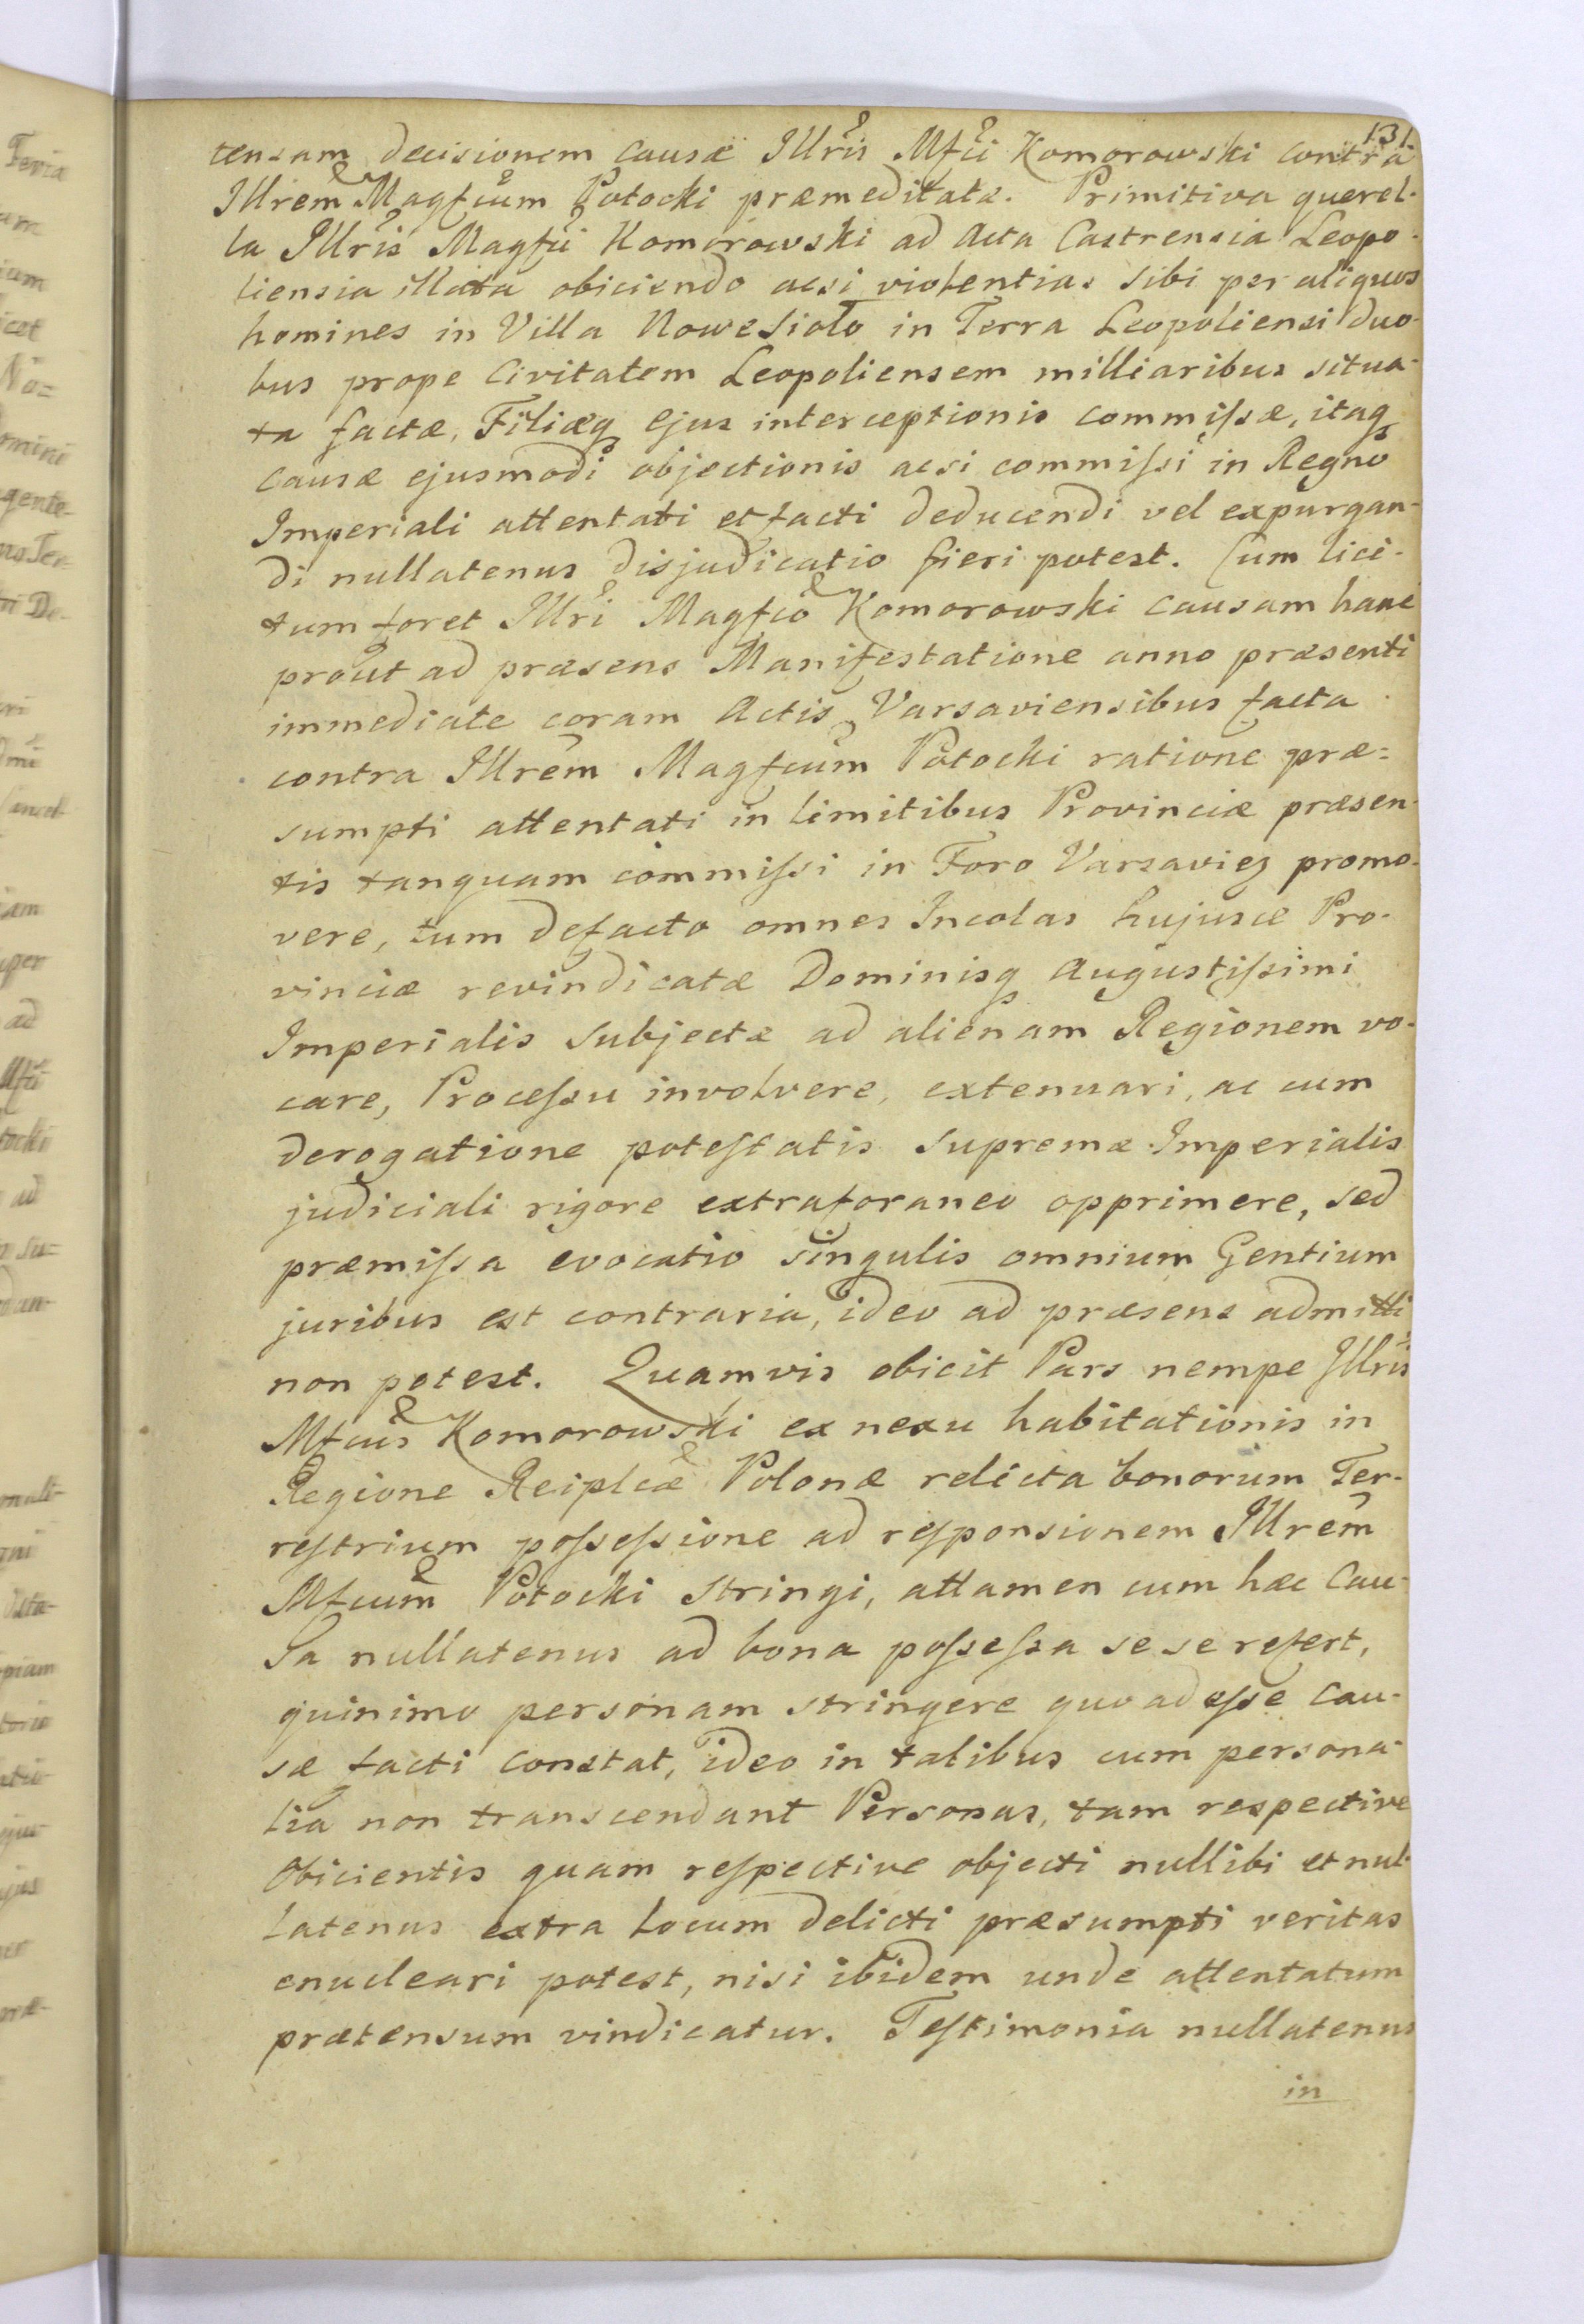 131
tensam decisionem causæ Illris Mfci Komorowski contra
Illrem Magfcum Potocki præmeditatæ. Primitiva querel-
la Illris Magfci Komorowski ad Acta Castrensia Leopo-
liensia illata obiciendo acsi violentias sibi per aliquos
homines in Villa Nowesioło in Terra Leopoliensi duo-
bus prope Civitatem Leopoliensem milliaribus situa-
ta factæ, Filiæq ejus interceptionis commiſsæ, itaq
causæ ejusmodi objectionis acsi commiſsi in Regno
Imperiali attentati et facti deducendi vel expurgan-
di nullatenus disjudicatio fieri potest. Cum lici-
tum foret Illri Magfco Komorowski causam hanc
prout ad præsens Manifestatione anno præsenti
immediate coram Actis Varsaviensibus facta
contra Illrem Magfcum Potocki ratione præ=
sumpti attentati in limitibus Provinciæ præsen-
tis tanquam commiſsi in Foro Varsavien promo-
vere, tum defacto omnes Incolas hujusce Pro-
vinciæ revindicatæ Dominisq Augustiſsimi
Imperialis subjectæ ad alienam Regionem vo-
care, Proceſsu involvere, extenuari, ac cum
derogatione poteſtatis supremæ Imperialis
judiciali rigore extraforaneo opprimere, sed
præmiſsa evocatio singulis omnium Gentium
juribus est contraria, ideo ad præsens admitti
non potest. Quamvis obicit Pars nempe Illris
Mfcus Komorowski ex nexu habitationis in
Regione Reiplcæ Polonæ relicta bonorum Ter-
reſtrium poſseſsione ad reſponsionem Illrem
Mfcum Potocki stringi, attamen cum hæc Cau-
sa nullatenus ad bona poſseſsa sese refert,
quinimo personam stringere quoad eſse Cau-
sæ facti constat, ideo in talibus cum persona-
lia non transcendant Personas, tam respective
Obicientis quam reſpective objecti nullibi et nul-
latenus extra locum delicti præsumpti veritas
enucleari potest, nisi ibidem unde attentatum
prætensum vindicatur. Teſtimonia nullatenus
in